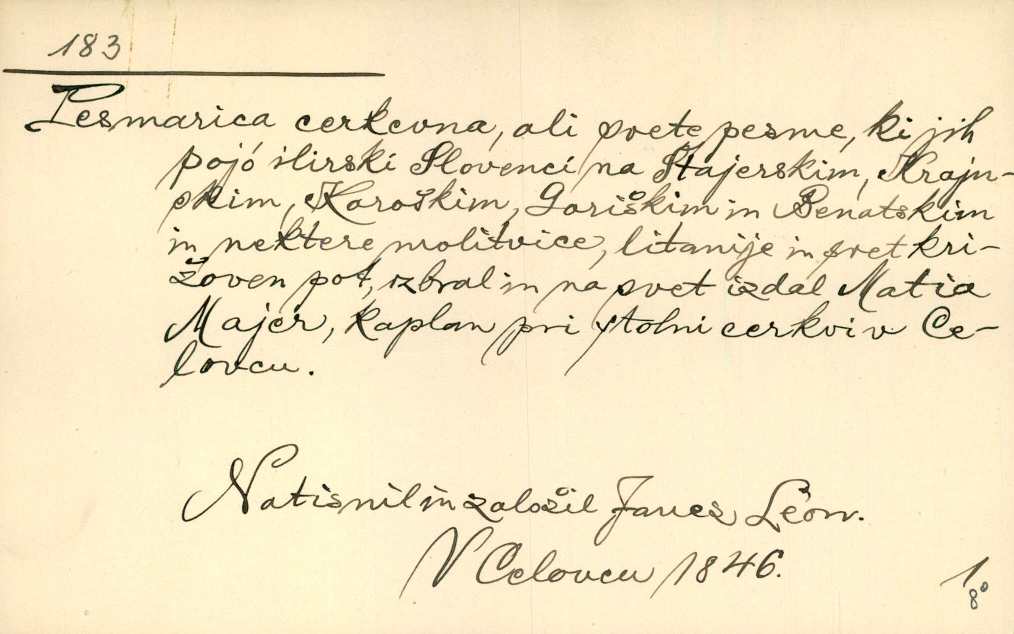 183
Pesmarica cerkevna, ali svete pesme, ki jih
pojó ilirski Slovenci na Štajerskim, Krajn-
skim, Koroškim, Goriškim in Benatskim
in nektere molitvice, litanije in svet kri-
žoven pot, izbral in na svet izdal Matia
Majer, kaplan pri stolni cerkvi v Ce-
lovcu.
Natisnil in založil Janez Léon.
V Celovcu 1846.
1
8°